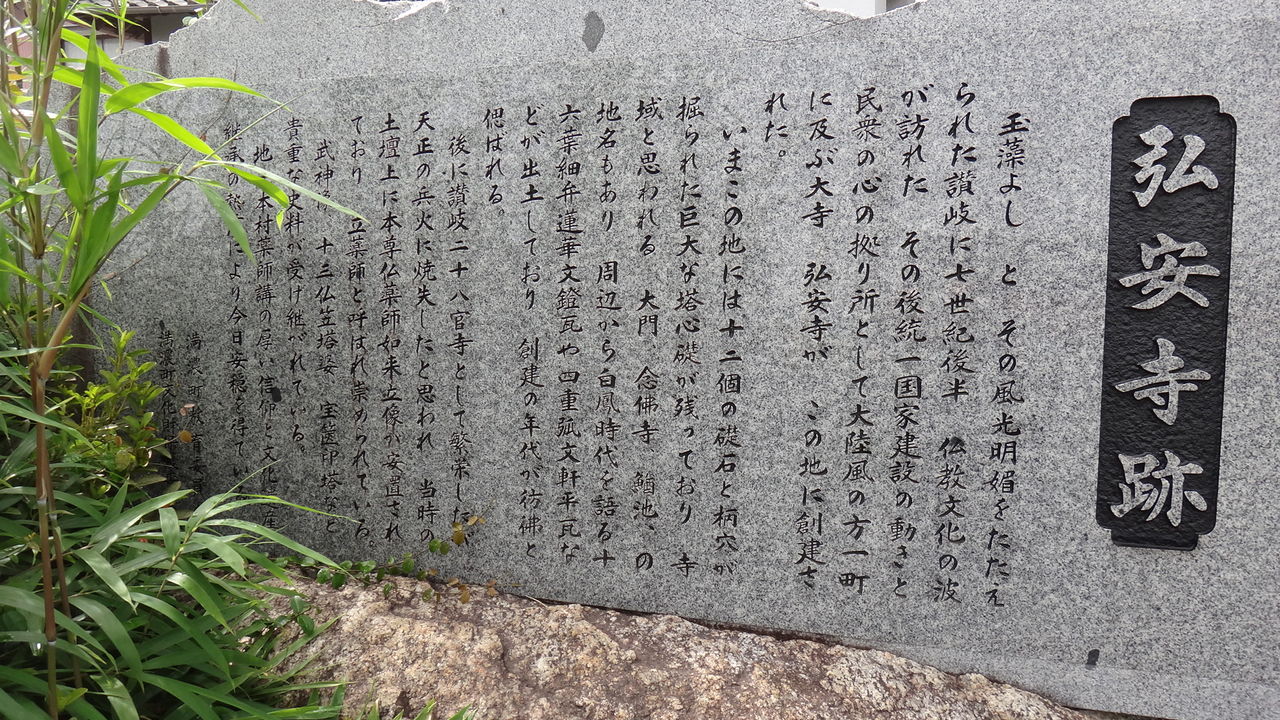 弘安寺跡
玉藻よし と その風光明媚をたたえ
られた讃岐に七世紀後半 仏教文化の波
が訪れた その後統一国家建設の動きと
民衆の心の拠り所として大陸風の方一町
に及ぶ大寺 弘安寺が この地に創建さ
れた。
いまこの地には、十二個の礎石と柄穴が
掘られた巨大な塔心礎が残っており 寺
域と思われる 大門、念佛寺、鰌池、の
地名もあり 周辺から白鳳時代を語る十
六葉細弁蓮華文鐙瓦や四重弧文軒平瓦な
どが出土しており 創建の年代が彷彿と
偲ばれる。
後に讃岐二十八官寺として繁栄した
天正の兵火に焼失したと思われ 当時の
土壇上に本尊仏薬師如来立像が安置され
ており 立薬師と呼ばれ崇められている。
武神 十三仏笠塔婆、宝医印塔など
貴重な史料が受け継がれている。
地 木村薬師講の厚い信仰と文化 産
承の により今日安穏を得てい
町 育
町文化財